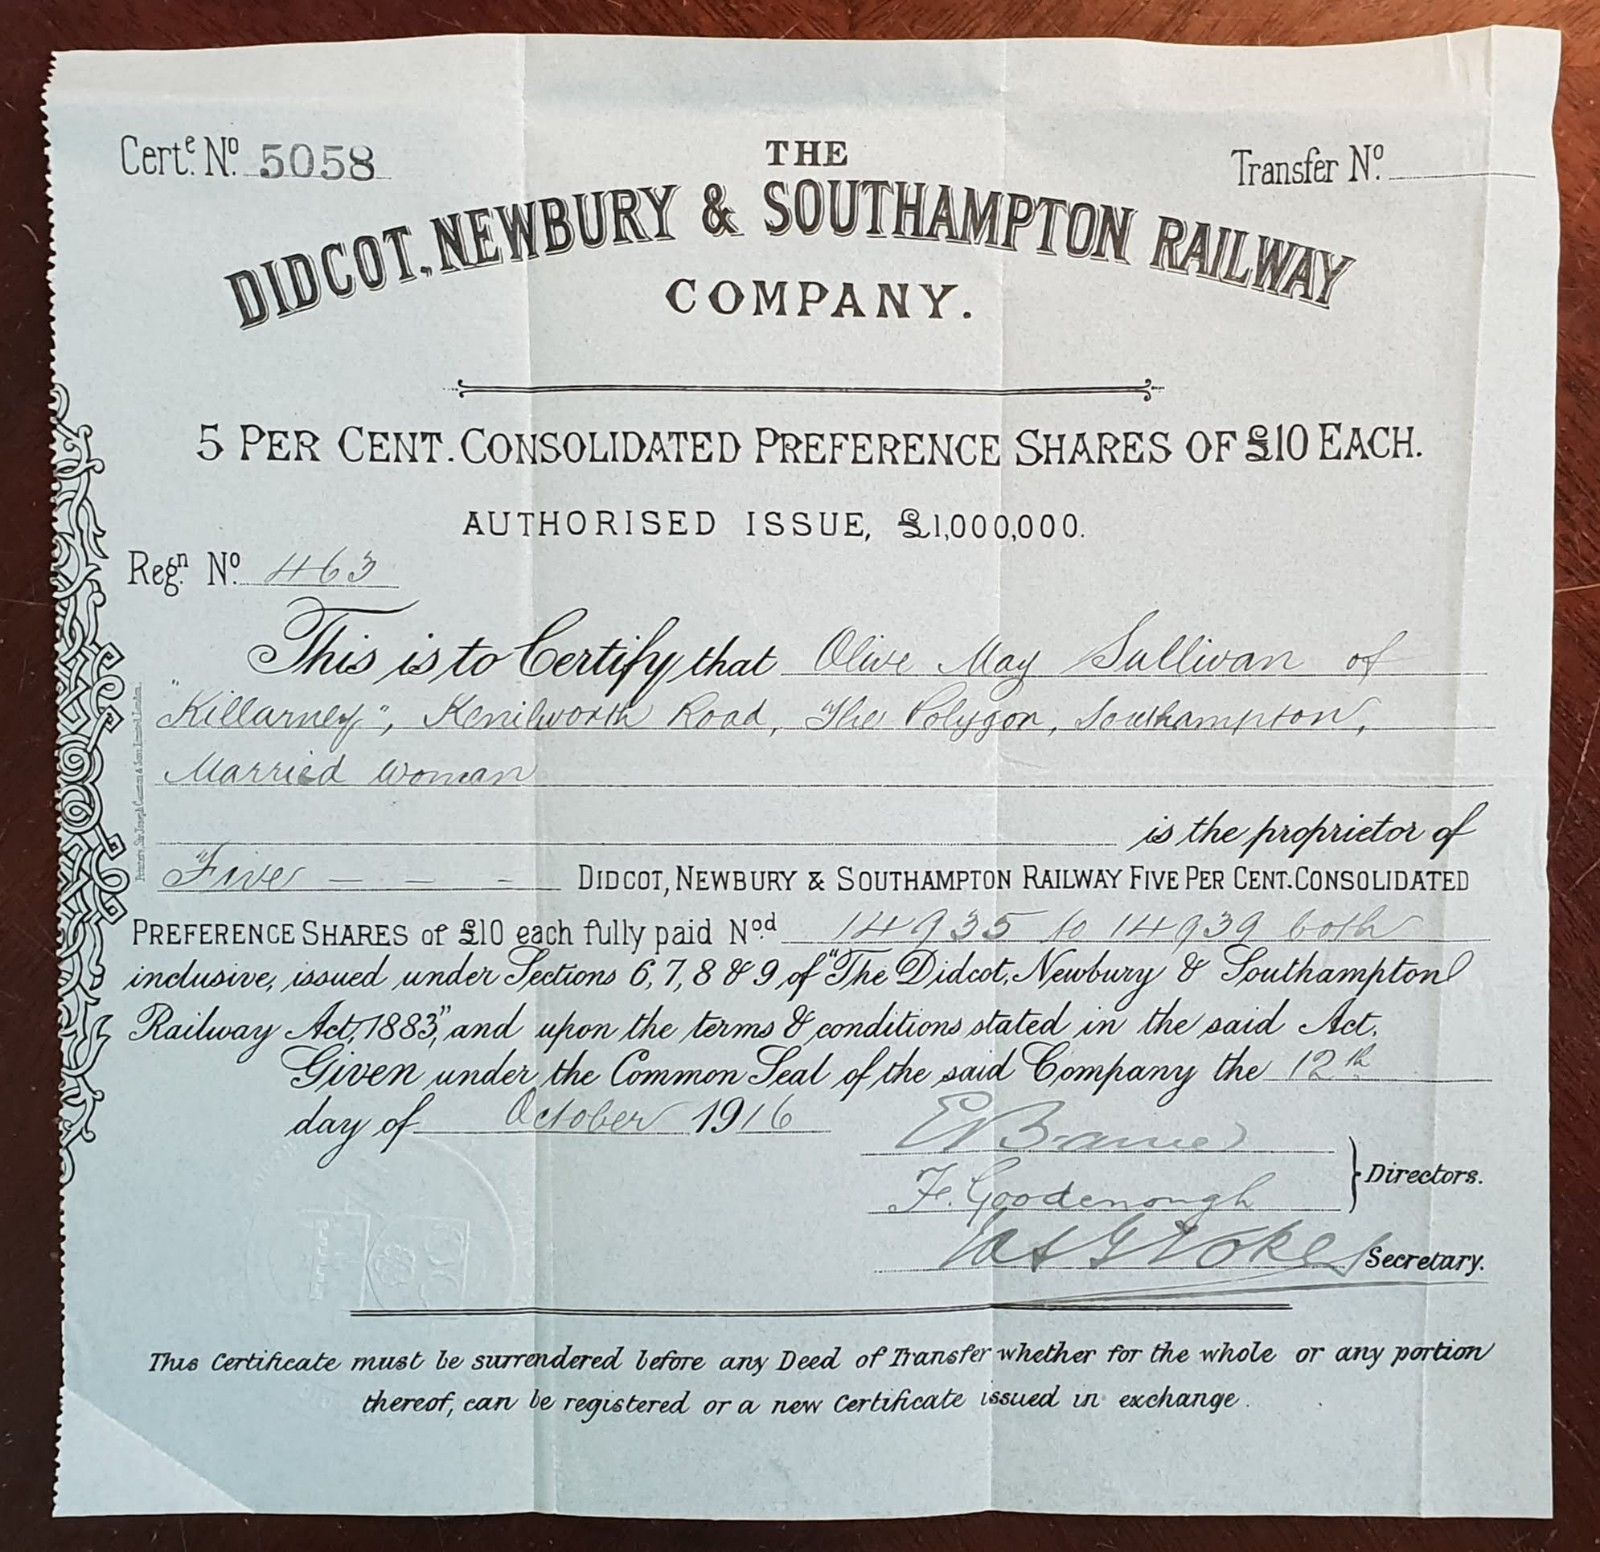 Certe. No. 5058
Transfer No.
THE
DIDCOT, NEWBURY & SOUTHAMPTON RAILWAY
COMPANY.
5 PER CENT. CONSOLIDATED PREFERENCE SHARES OF £10 EACH.
AUTHORISED ISSUE, £1,000,000.
Regn. No. 463
This is to Certify that Olive May Sullivan of
"Killarney", Kenilworth Road, The Polygon, Southampton,
Married Woman
is the proprietor of
Five - - - DIDCOT, NEWBURY & SOUTHAMPTON RAILWAY FIVE PER CENT. CONSOLIDATED
PREFERENCE SHARES of £10 each fully paid Nod. 14935 to 14939 both
inclusive, issued under Sections 6, 7, 8 & 9 of "The Didcot, Newbury & Southampton
Railway Act, 1883," and upon the terms & conditions stated in the said Act.
Given under the Common Seal of the said Company the 12th
day of October 1916
F. Goodenough
Directors.
Secretary.
This Certificate must be surrendered before any Deed of Transfer whether for the whole or any portion
thereof, can be registered or a new Certificate issued in exchange.